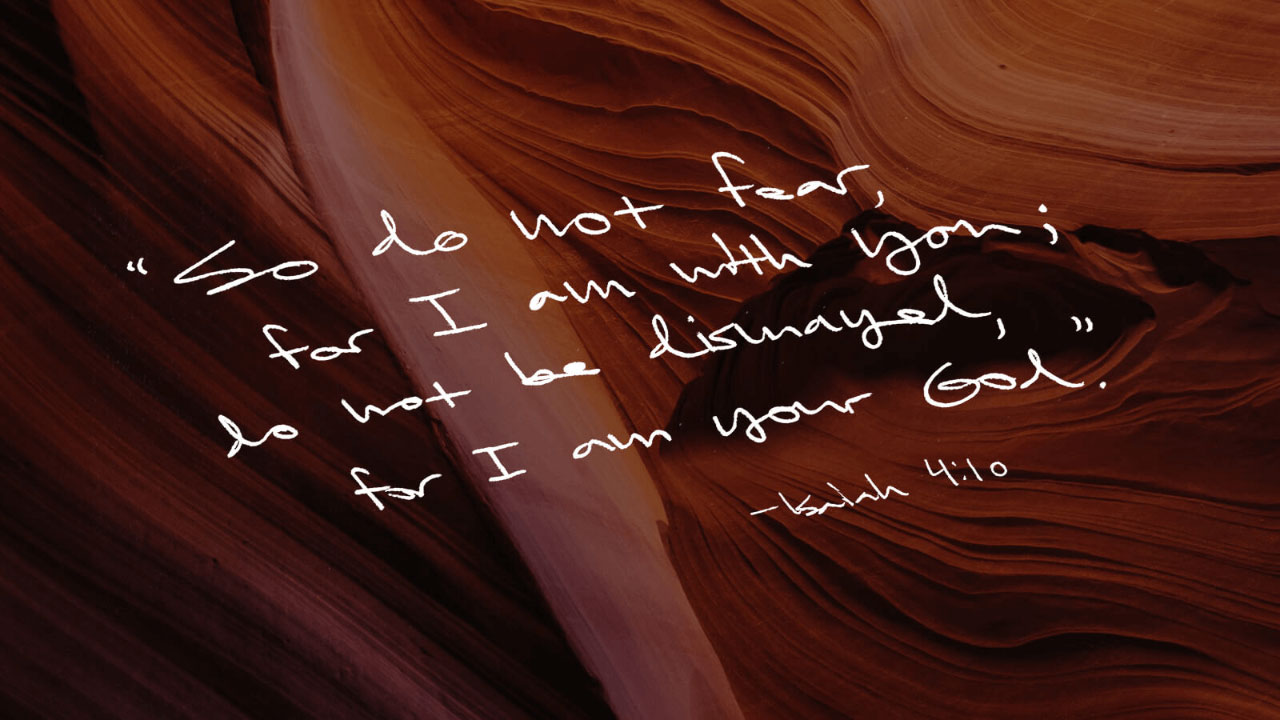 “So do not fear,
for I am with you;
do not be dismayed,
for I am your God.”
-Isaiah 4:10